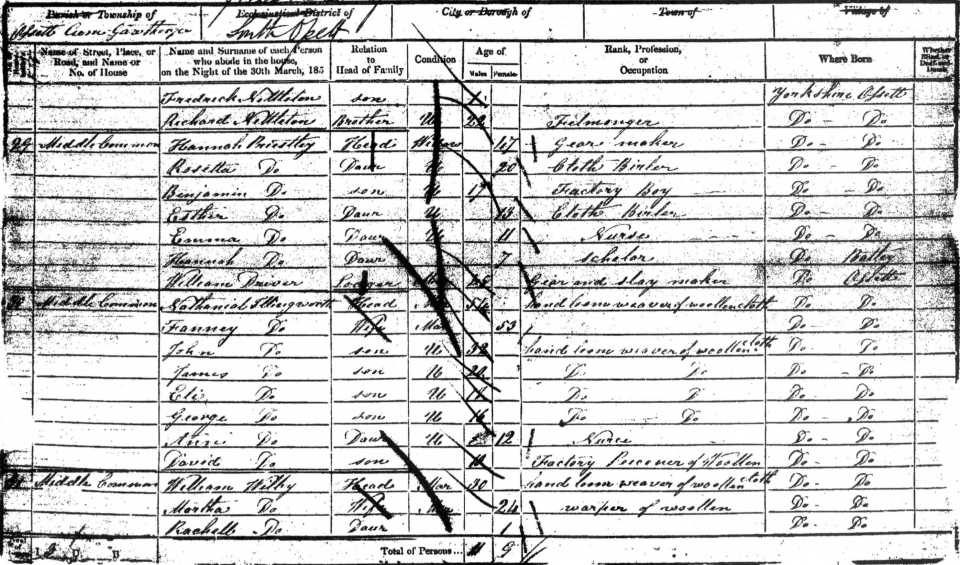 Parish or Township of Ecclesiastical District of City or Borough of Town of Village of
Ossett Cum Gawthorpe South Ossett
Name of Street, Place, or Road, and Name or No. of House Name and Surname of each Person who abode in the house, on the Night of the 30th March, 185 Relation to Head of Family Condition Age of Males Females Rank, Profession, or Occupation Where Born Whether Blind or Deaf-and-Dumb
Fredrick Nettleton son Yorkshire Ossett
Richard Nettleton Brother U 22 Felmonger Do - Do
29 Middle Common Hannah Priestley Head Widow 47 Gears maker Do - Do
Rosetta Do Daur U 20 Cloth Birler Do - Do
Benjamin Do son U 17 Factory Boy Do - Do
Esther Do Daur U 13 Cloth Birler Do - Do
Emma Do Daur U 11 Nurse Do - Do
Hannah Do Daur 7 scholar Do Batley
William Driver Lodger Gear and slay maker Do Ossett
Middle Common Nathanial Illingworth Head 54 hand loom weaver of woollen cloth Do Do
Fanney Do Wife Mar 53 Do Do
John Do son U 32 hand loom weaver of woollen cloth Do Do
James Do son U Do Do Do - Do
Eli Do son U Do D Do Do
George Do son U 16 Do Do Do - Do
Ann Do Daur U 12 Nurse Do - Do
David Do son Factory Peicener of Woollen Do - Do
Middle Common William Do Head Mar 30 hand loom weaver of woollen cloth Do - Do
Martha Do Wife Mar 24 warper of woollen Do - Do
Rachell Do Daur 1 Do - Do
Total of Persons... 11 9